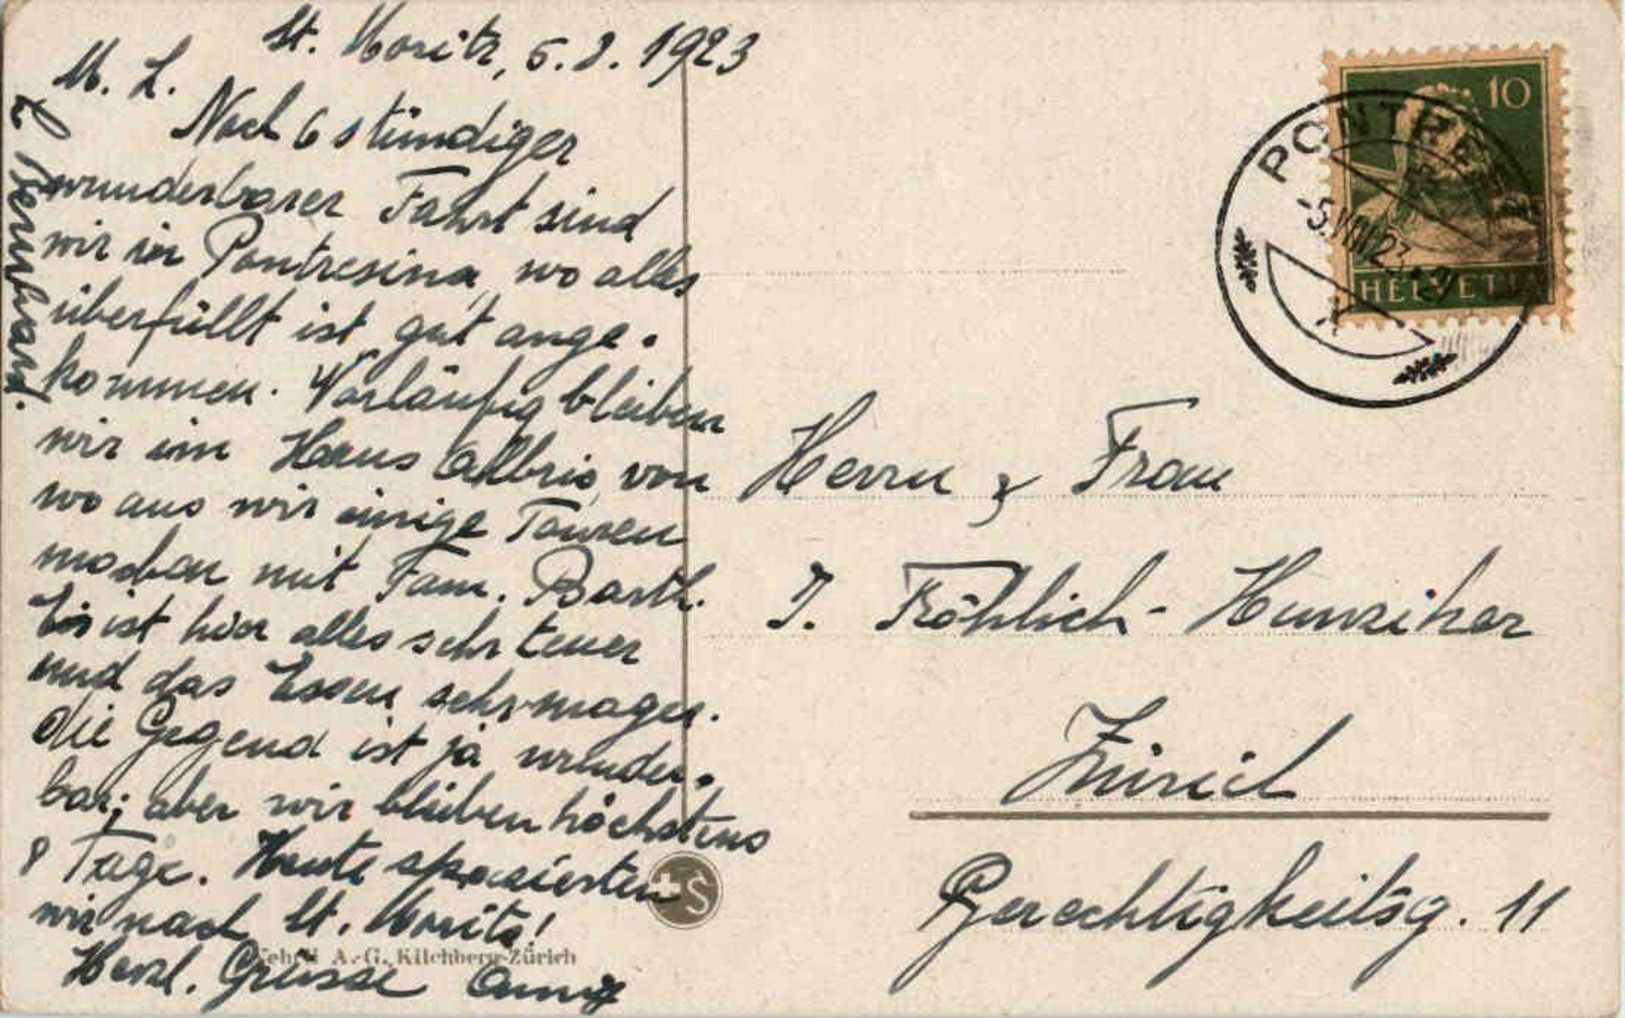 St. Moritz, 5.8.1923
M. L.
Nach 6 stündiger
wunderbarer Fahrt sind
wir in Pontresina, wo alles
überfüllt ist, gut ange-
kommen. Vorläufig bleiben
wir im Haus Albris, von
wo aus wir einige Touren
machen mit Fam. Barth.
Es ist hier alles sehr teuer
und das Essen sehr mager.
die Gegend ist ja wunder-
bar; aber wir bleiben höchstens
8 Tage. Heute spazierten
wir nach St. Moritz!
Herzl. Grüsse
& Bernhard.
Wehrli A.-G. Kilchberg-Zürich
+S
10
HELVETIA
PONTRESINA
-5.VIII.23.-21
Herrn & Frau
J. Fröhlich-Hunziker
Zürich
Gerechtigkeitsg. 11